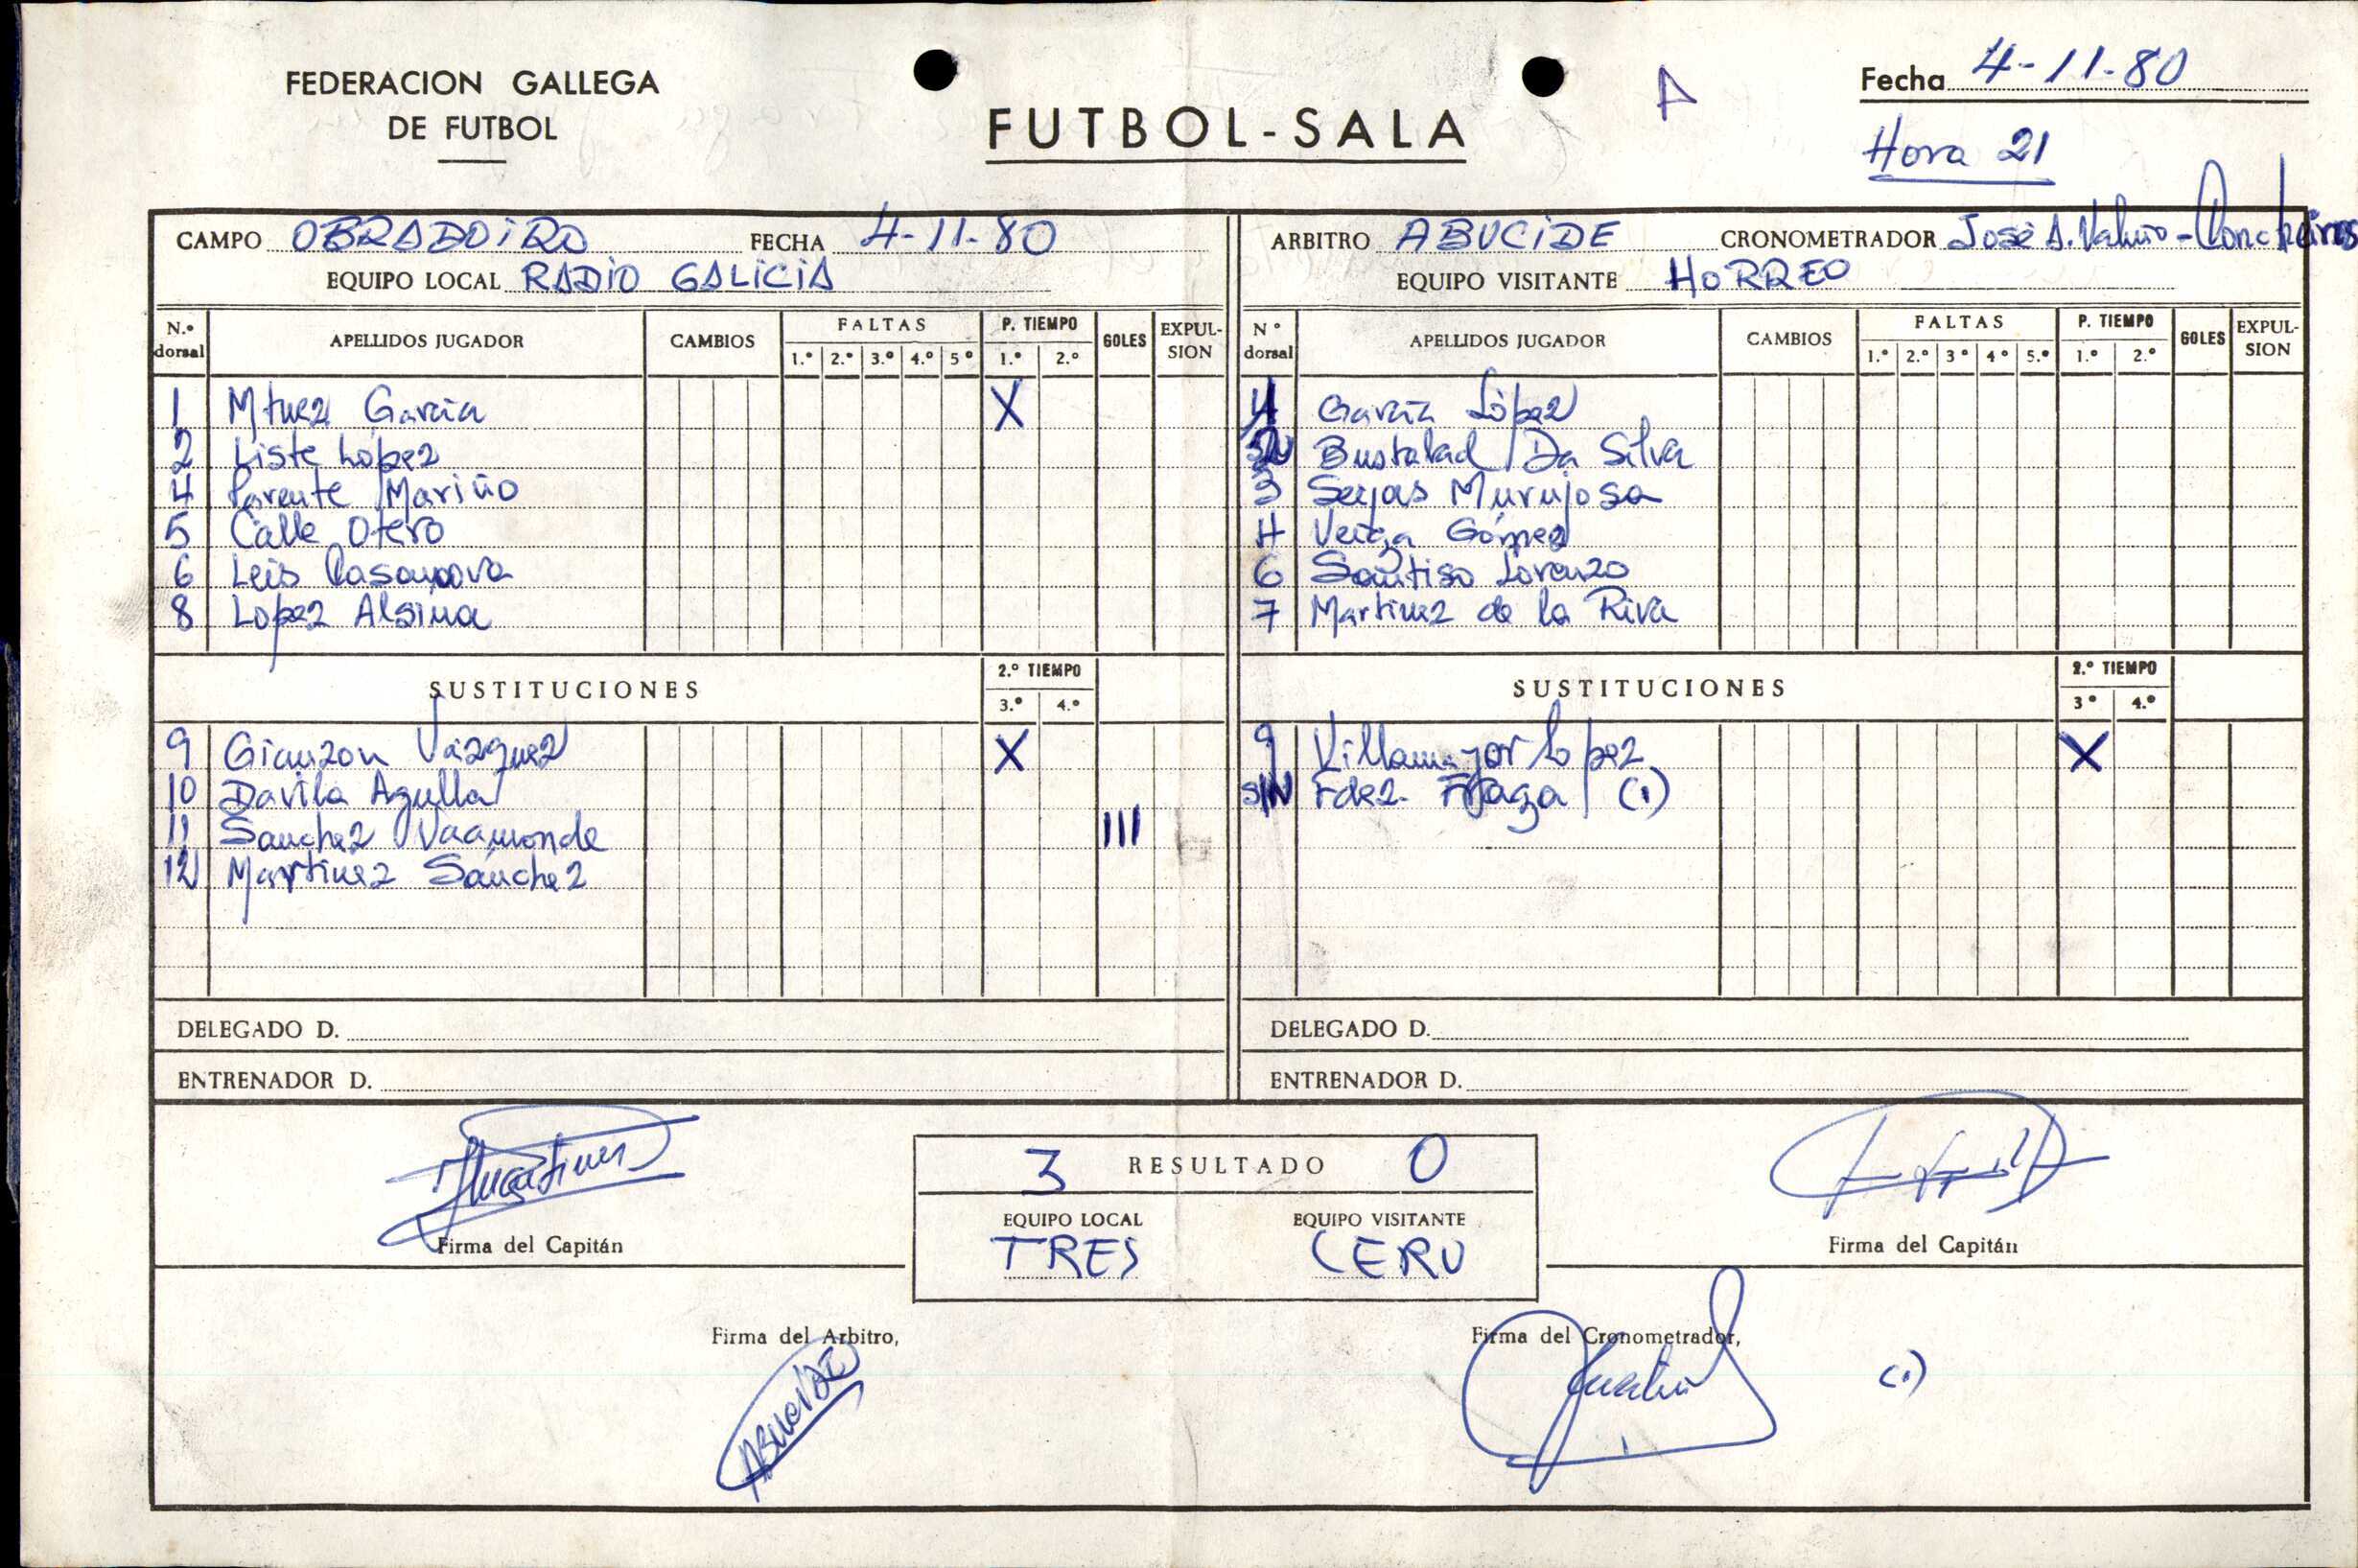 FEDERACION GALLEGA
DE FUTBOL
FUTBOL-SALA
A
Fecha 4-11-80
Hora 21
CAMPO OBRADOIRO FECHA 4-11-80
EQUIPO LOCAL RADIO GALICIA
N.º dorsal APELLIDOS JUGADOR CAMBIOS FALTAS 1.º 2.º 3.º 4.º 5º P. TIEMPO 1.º 2.º GOLES EXPULSION
1 Mtnez García X
2 Liste López
4 Parente Mariño
5 Calle Otero
6 Leis Casanova
8 Lopez Alsina
SUSTITUCIONES 2.º TIEMPO 3.º 4.º
9 Gianzon Vázquez X
10 Davila Agulla
11 Sanchez Vaamonde III
12 Martinez Sánchez
DELEGADO D.
ENTRENADOR D.
ARBITRO ABUCIDE CRONOMETRADOR José A. - Concheiros
EQUIPO VISITANTE HORREO
Nº dorsal APELLIDOS JUGADOR CAMBIOS FALTAS 1.º 2.º 3º 4º 5.º P. TIEMPO 1.º 2.º GOLES EXPULSION
García López
Bustabad Da Silva
3 Seijas Murujosa
4 Veiga Gómez
6 Santiso Lorenzo
7 Martinez de la Riva
SUSTITUCIONES 2.º TIEMPO 3º 4.º
9 Villamayor Lopez X
S/N Fdez. Fraga (1)
DELEGADO D.
ENTRENADOR D.
3 RESULTADO 0
EQUIPO LOCAL EQUIPO VISITANTE
TRES CERO
Firma del Capitán
Firma del Capitán
Firma del Arbitro,
ABUCIDE
Firma del Cronometrador,
(1)